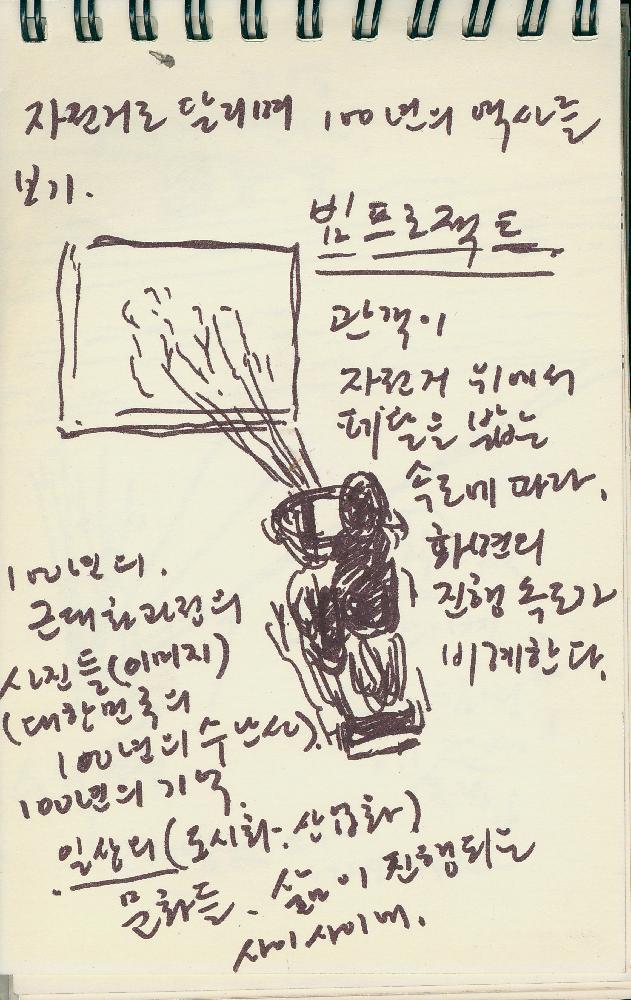 자전거로 달리며 100년의 역사를
보기.
빔 프로젝트.
관객이
자전거 위에서
페달을 밟는
속도에 따라.
화면의
진행 속도가
비계한다.
100년의.
근대화과정의
사진들(이미지)
(대한민국의
100년의 수난사).
100년의 기억.
일상의 (도시화. 산업화)
문화들. 삶이 진행되는
사이사이에.